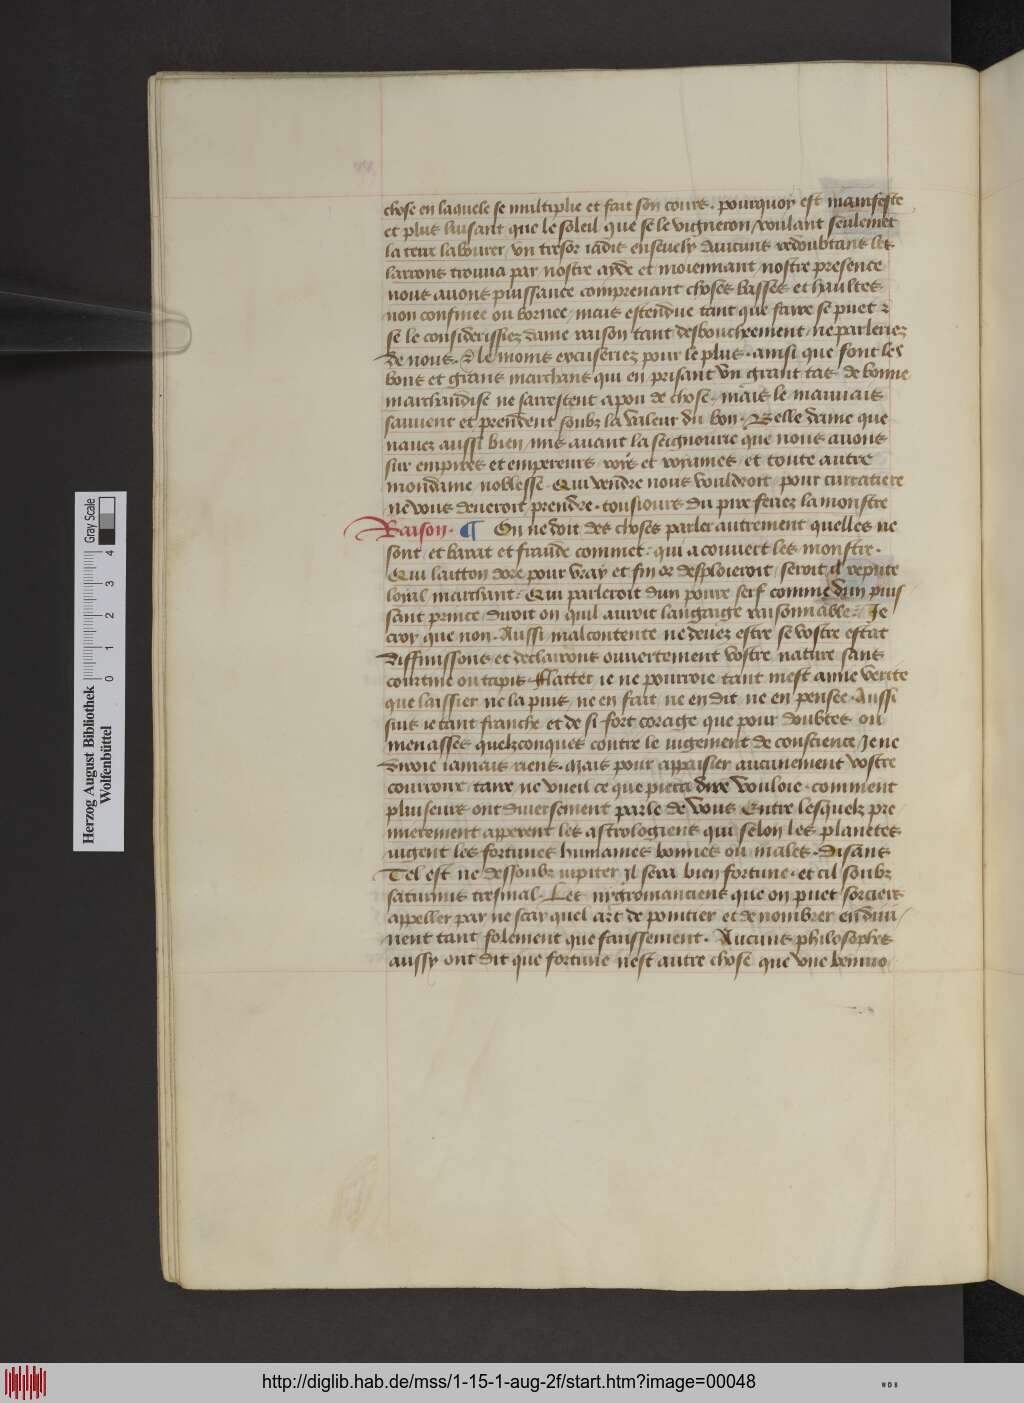 chose en laquele se multiplie et fait son cours. pourquoy est manifeste
et plus luisant que le soleil que se le vigneron / voulant seulemet
la terre labourer / un tresor iadis enseuely daucuns redoubtans les
larrons trouua par nostre ayde et moiennant nostre presence
nous auons puissance comprenant choses basses et haultes
non confinee ou bornee / mais estendue tant que faire se puet z
se le considerissiez dame raison tant desboucheement / ne parleriez
de nous. & le moins excuseriez pour le plus. ainsi que font les
bons et grans marchans qui en prisant un grant tas de bonne
marchandise ne sarrestent a pou de chose. mais le mauuais
sauuent et prendent soubz la valeur du bon. Belle dame que
nauez aussi bien mis auant la seignourie que nous auons
sur empires et empereurs / roys et royames / et toute autre
mondaine noblesse. Qui vendre nous vouldroit / pour curratiere
ne vous deueroit prendre. tousiours du pire feriez la monstre
Raison. ¶ On ne doit des choses parler autrement quelles ne
sont / et barat et fraude commet: qui a couuert les monstre.
Qui laitton dore pour vray et fin or desploieroit / seroit il repute
loyal marchant. Qui parleroit dun poure serf comme dun puis/
sant prince / diroit on quil auroit langaige raisonnable. Je
croy que non. Aussi malcontente ne deuez estre se vostre estat
diffinissons et declairons ouuertement vostre nature sans
courtine ou tapis. Flatter ie ne pourroie tant mest amie verite
que laissier ne la puis / ne en fait / ne en dit / ne en pensee. Aussi
suis ie tant franche et de si fort corage que pour doubtes ou
menasses quelzconques contre le iugement de conscience / Je ne
diroie iamais riens. Mais pour appaisier aucunement vostre
courroux / taire ne vueil ce que pieca dire vouloie. comment
pluiseurs ont diuersement parle de vous Entre lesquelz pre
mierement apperent les astrologiens qui selon les planetes
iugent les fortunes humaines bonnes ou males. Disans
Tel est ne dessoubz iupiter Il sera bien fortune. et cil soubz
saturnus tresmal. Les nigromanciens que on puet sorciers
appeller par ne scay quel art de pointier et de nombrer en diui/
nent tant folement que faussement. Aucuns philosophes
aussy ont dit que fortune nest autre chose que vne
Herzog August Bibliothek
Wolfenbüttel
Gray Scale
0 1 2 3 4
http://diglib.hab.de/mss/1-15-1-aug-2f/start.htm?image=00048